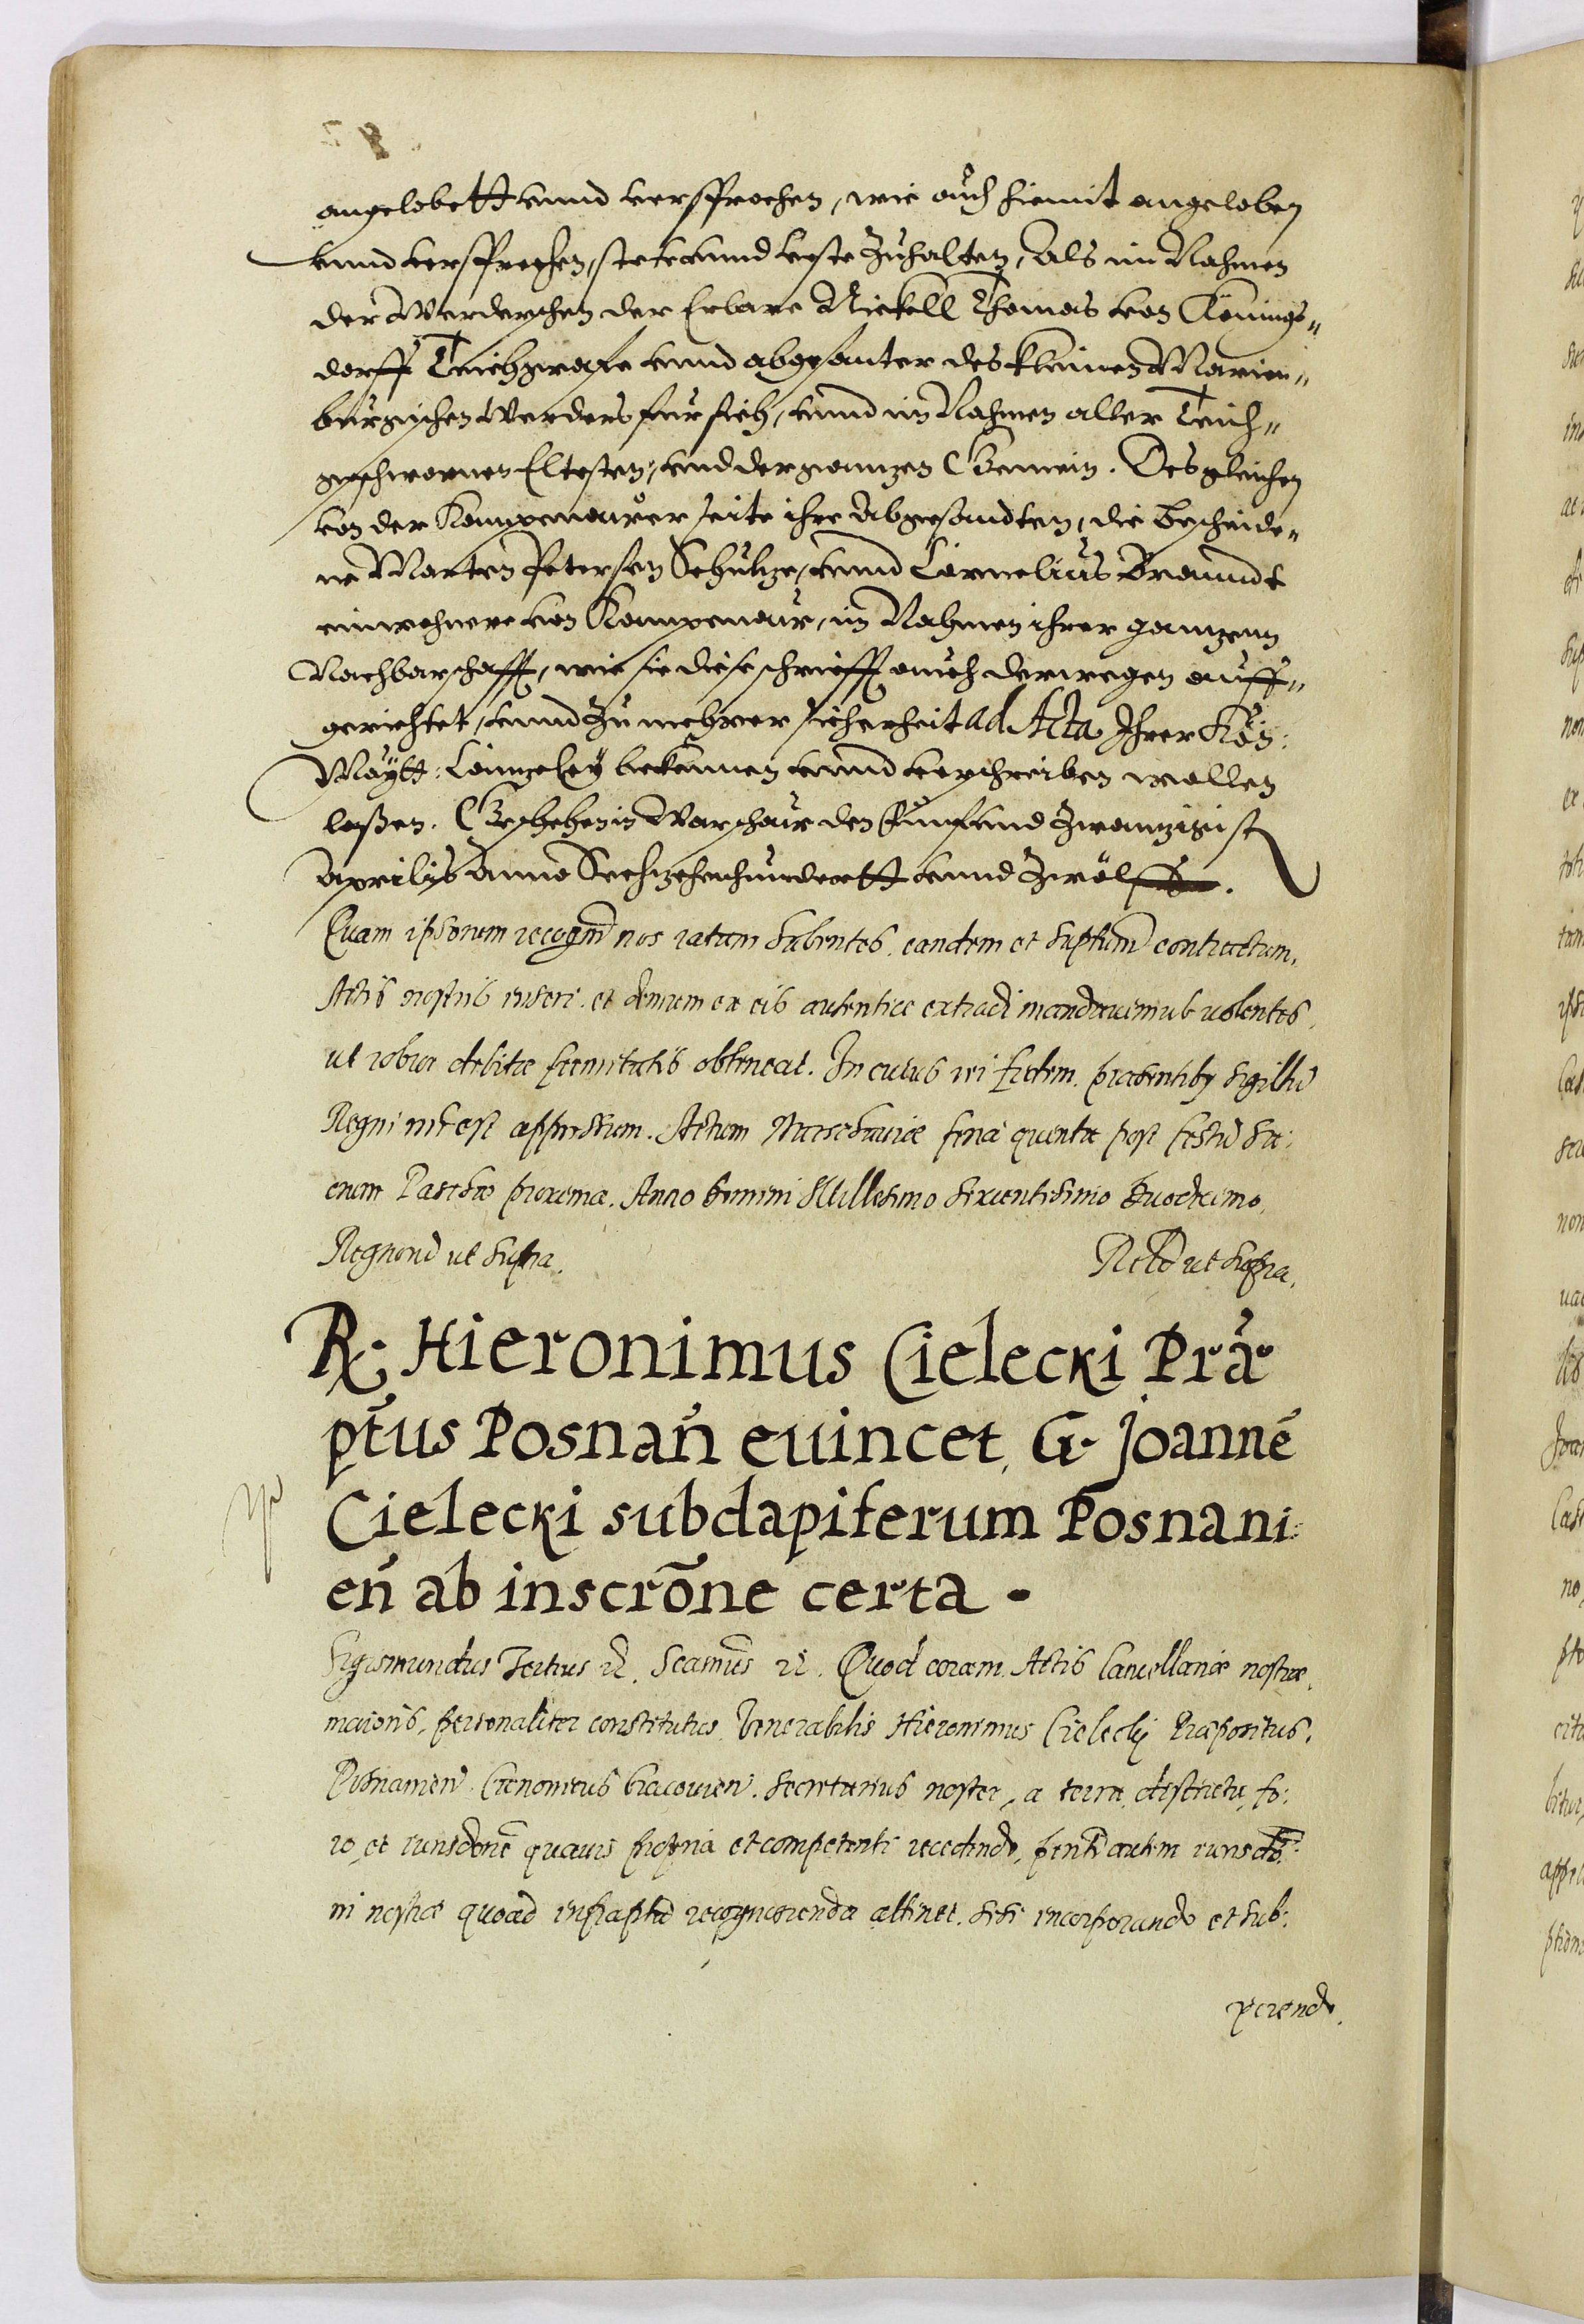 angelobett vnnd versprochen, wie auch hiemit angeloben
vnnd versprechen, stete vnnd veste zuhalten, Als im Nahmen
der Werderschen der Erbare Nickell Thomas von Königs„
dorff Teichgrafe vnnd abgesanter des kleinen Marien„
burgischen Werders für sich, vnnd im Nahmen aller Teich„
geschwornen Eltesten, vnd der gantzen Gemein. Desgleichen
von der Kampenauer seite ihre Abgesandten, die bescheide„
ne Marten Petersen Schultze, vnnd Cornelius Branndt
einwohnere von Kampenaur, in Nahmen ihrer gantzenn
Nachbarschafft, wie sie diese schriefft auch derwegen auff„
gerichtet, vnnd zu mehrer sicherheit ad Acta Ihrer Kön:
Maytt: Cantzeley bekennen vnnd verschreiben wollen
laßen. Geschehen in Warschaw den fünf vnd zwanzigist
Aprilis Anno Sechzehenhundertt vnnd zwölff.
Quam ipsorum recognm nos ratam habentes. eandem et suptum contractum,
Actis nostris inseri. et demum ex eis autentice extradi mandauimus uolentes,
ut robur debitæ firmitatis obtineat. In cuius rei fidem. præsentibus sigillū
Regni nri est appressum. Actum Warschauiæ feria quinta post festū Sa:
crum Paschæ proxima. Anno Domini Millesimo Sexcentesimo Duodecimo.
Regnorū ut supra. Relō ut supra.
R. Hieronimus Cielecki Præ
ptus Posnan euincet, G. Joannē
Cielecki subdapiferum Posnani:
en ab inscrōne certa.
Sigismundus Tertius etc. Scamus etc. Quod coram. Actis Cancellariæ nostræ,
maioris, personaliter constitutus. Venerabilis Hieronimus Cielecky Præpositus,
Posnanien. Canonicus Cracouien. Secretarius noster, a terra, districtu, fo:
ro, et iurisdone quauis propria et competenti recedendo, pnti autem iurisdo:
ni nostræ quoad infraptū recognoscenda attinet. sese incorporando et sub:
yciendo.